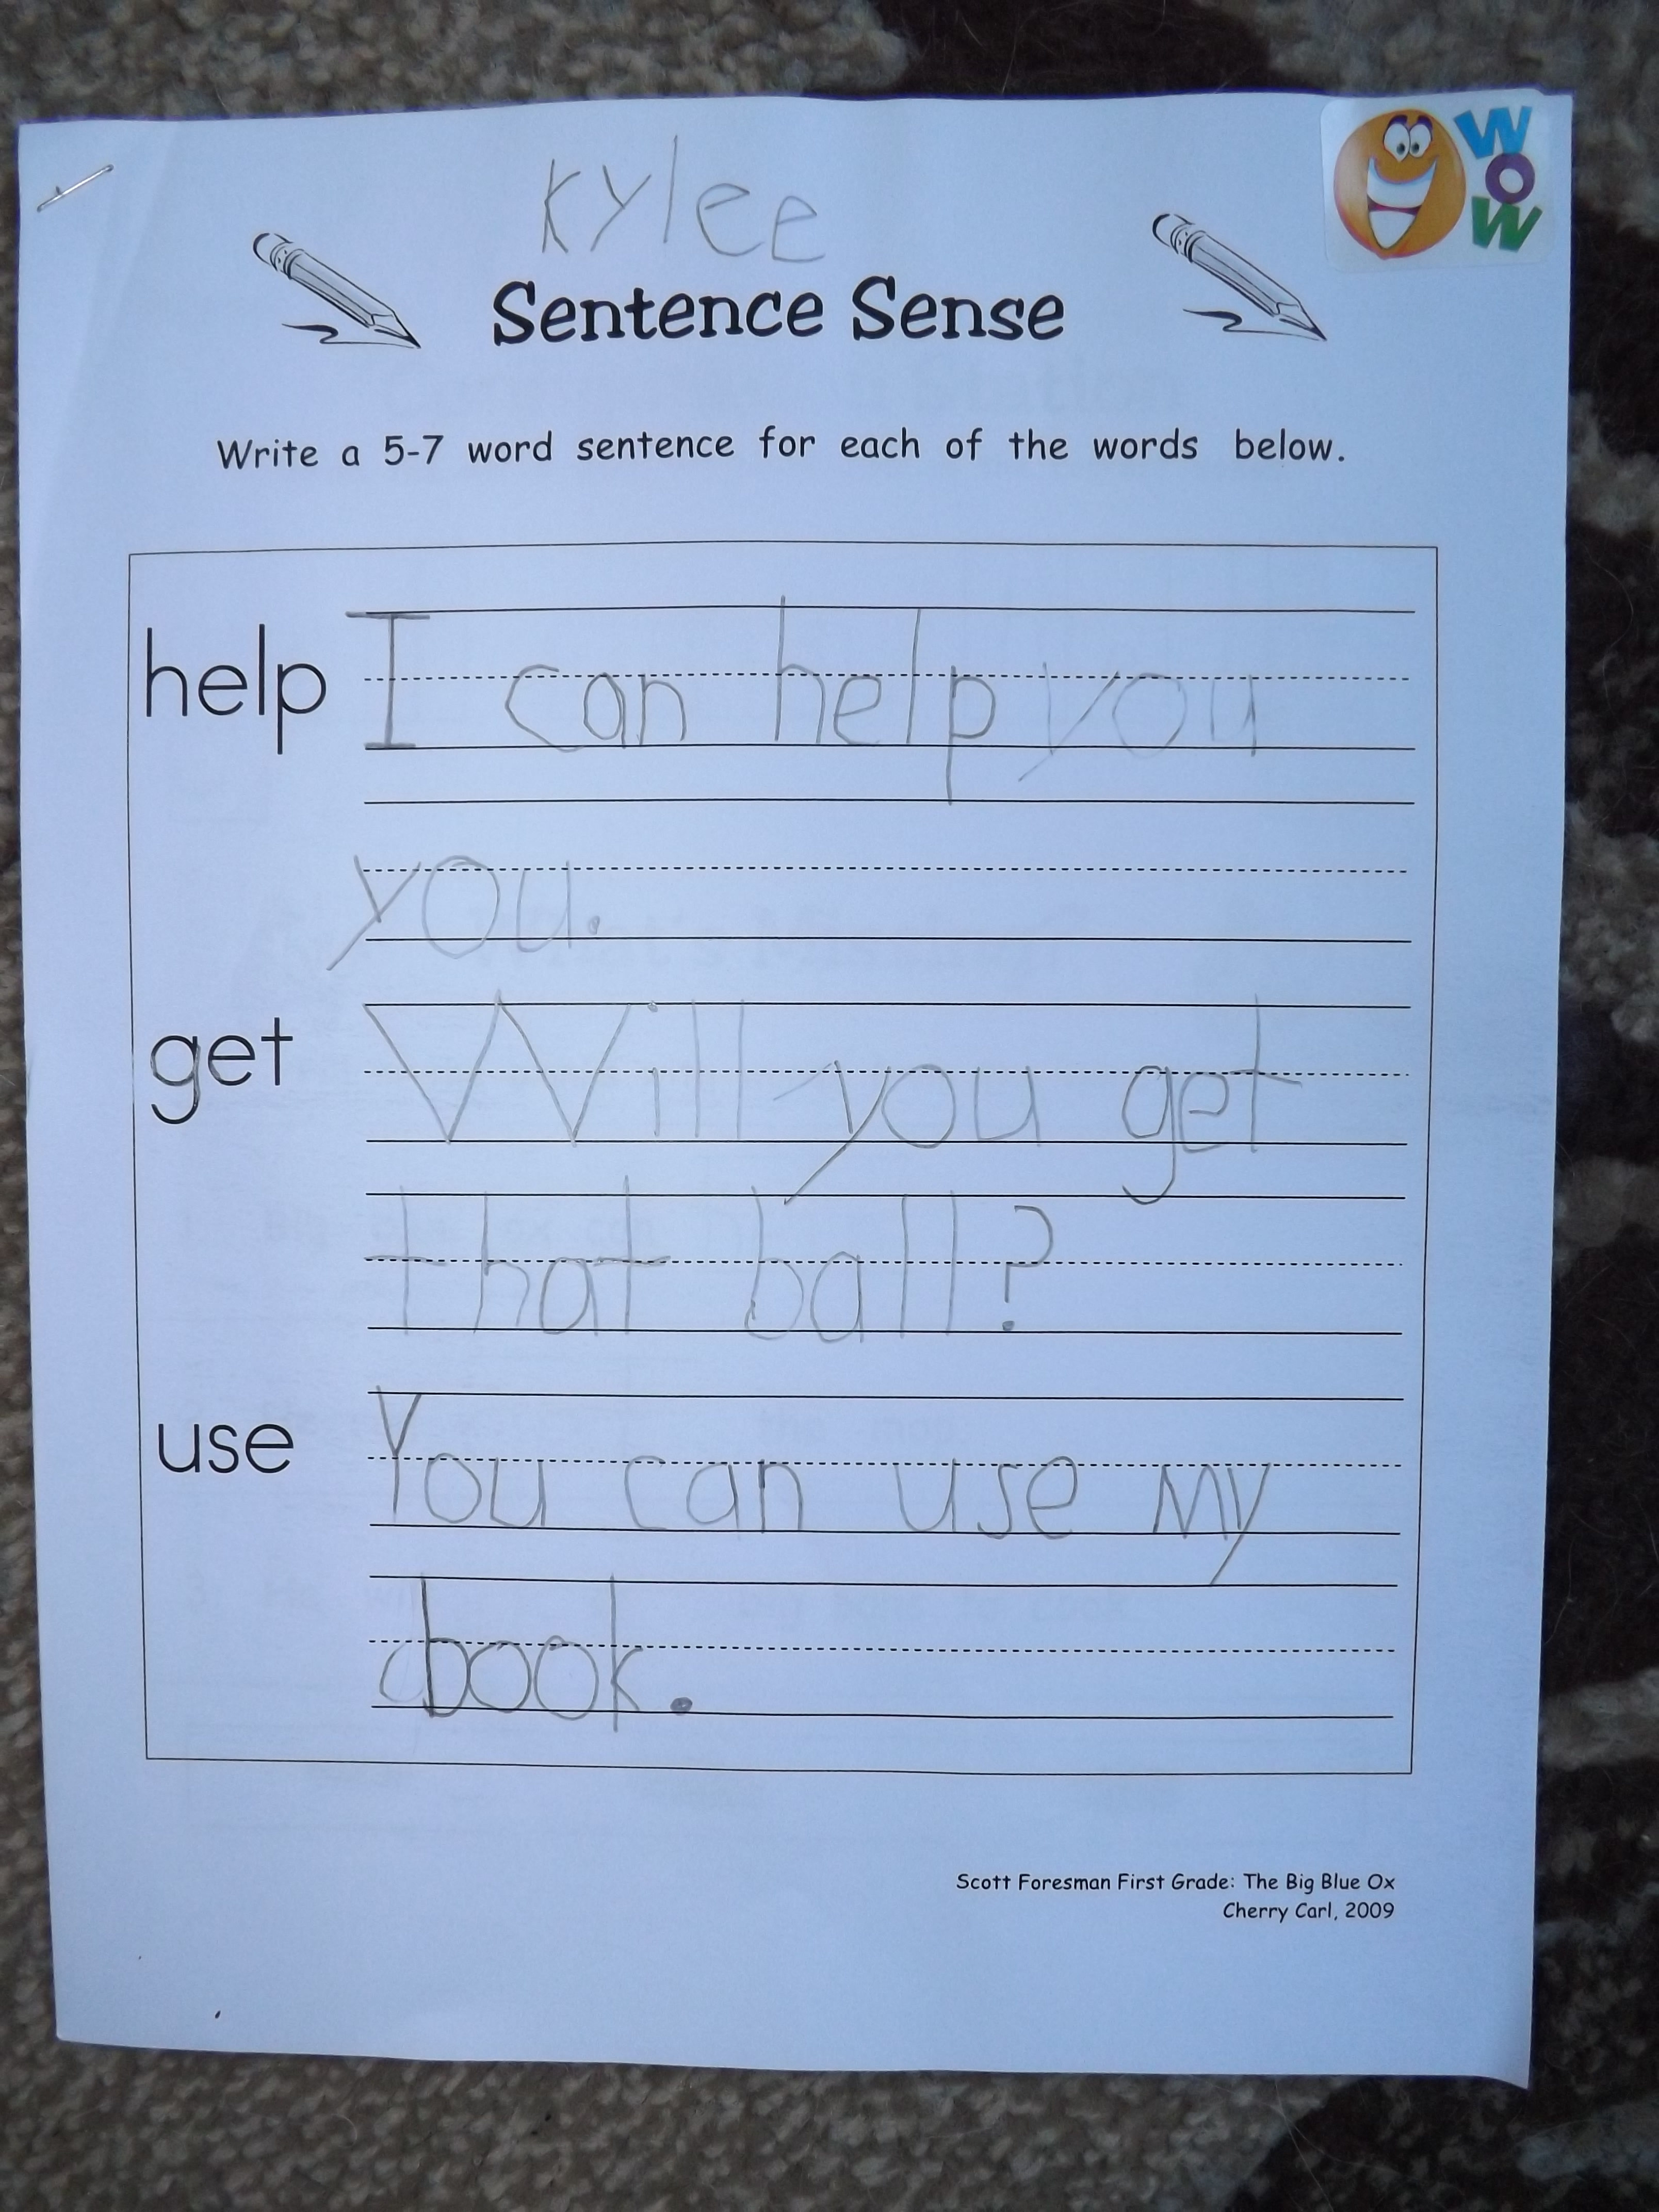 Kylee
WOW
Sentence Sense
Write a 5-7 word sentence for each of the words below.
help I can help you
you.
get Will you get
that ball?
use You can use my
book.
Scott Foresman First Grade: The Big Blue Ox
Cherry Carl, 2009